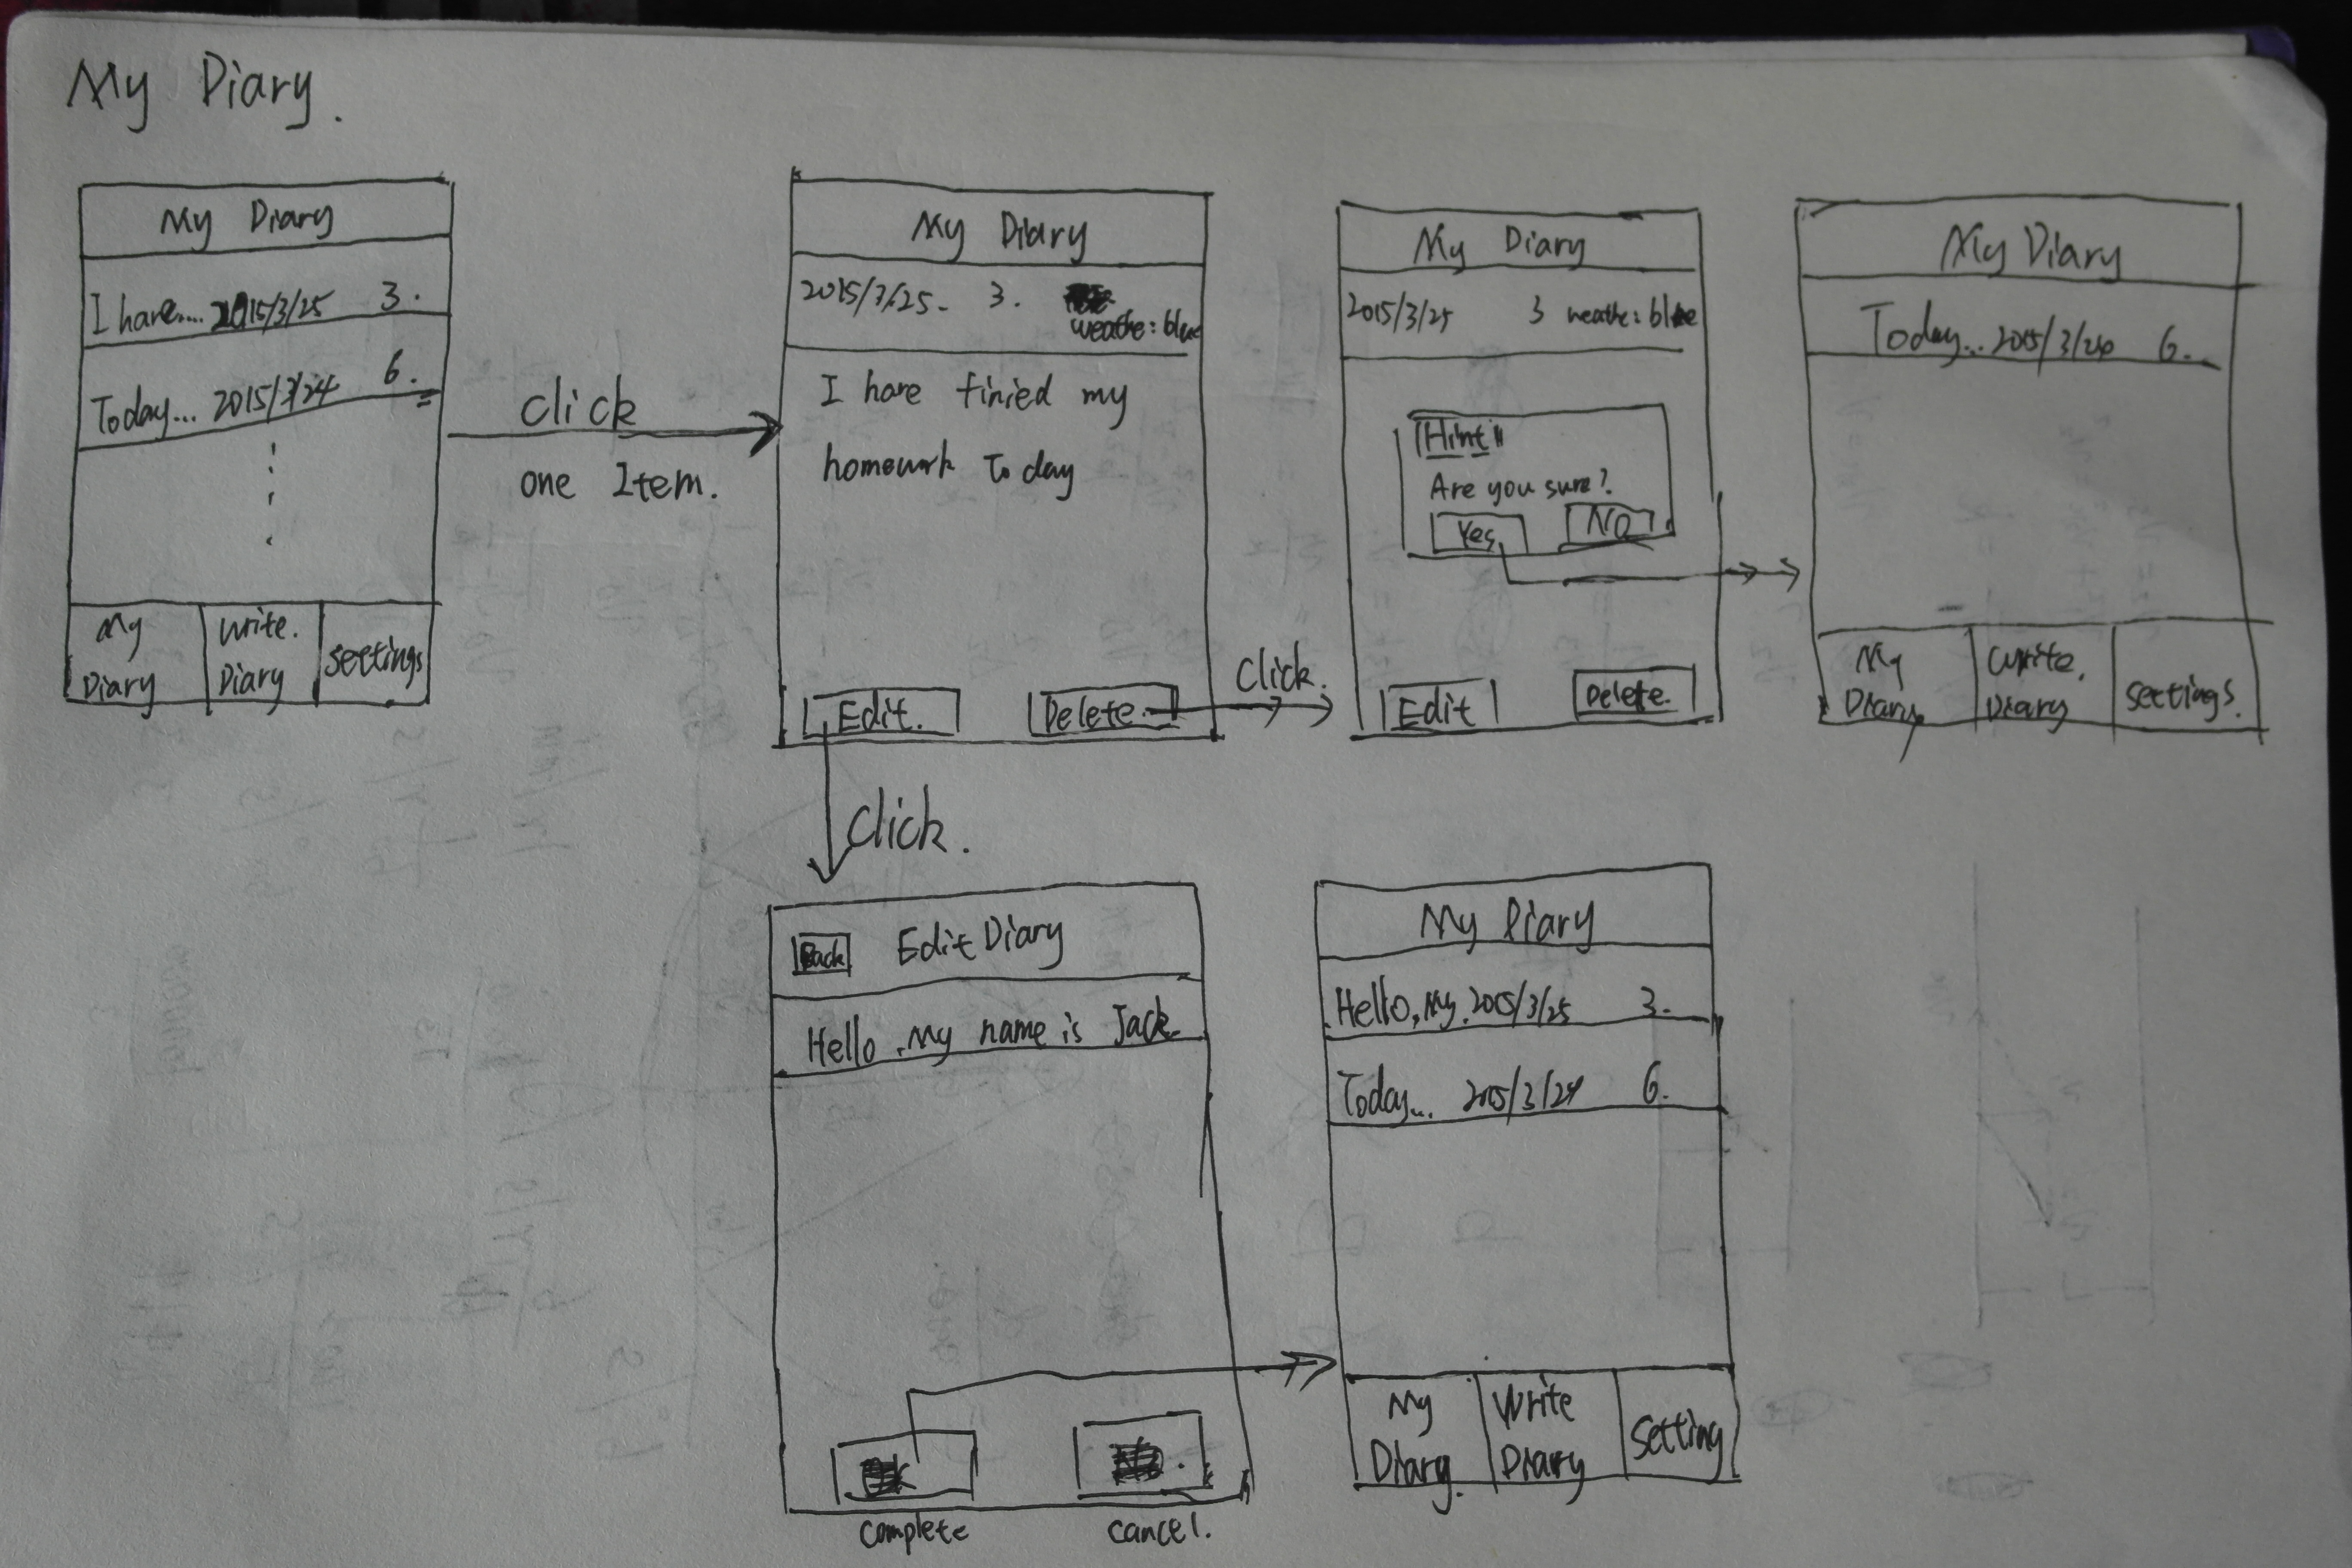 My Diary.
My Diary
I have.... 2015/3/25 3.
Today... 2015/3/24 6.
My Diary
Write. Diary
Settings
Click
one Item.
My Diary
2015/3/25. 3.
weathe: blue
I have finied my
homework Today
Edit.
Delete.
Click.
My Diary
2015/3/25 3 weathe: blue
"Hint"
Are you sure?
Yes
NO
Edit
Delete.
My Diary
Today... 2015/3/24 6.
My Diary
Write. Diary
Settings.
Click.
Back
Edit Diary
Hello, My name is Jack.
complete
cancel.
My Diary
Hello, My. 2015/3/25 3.
Today... 2015/3/24 6.
My Diary.
Write Diary
Setting